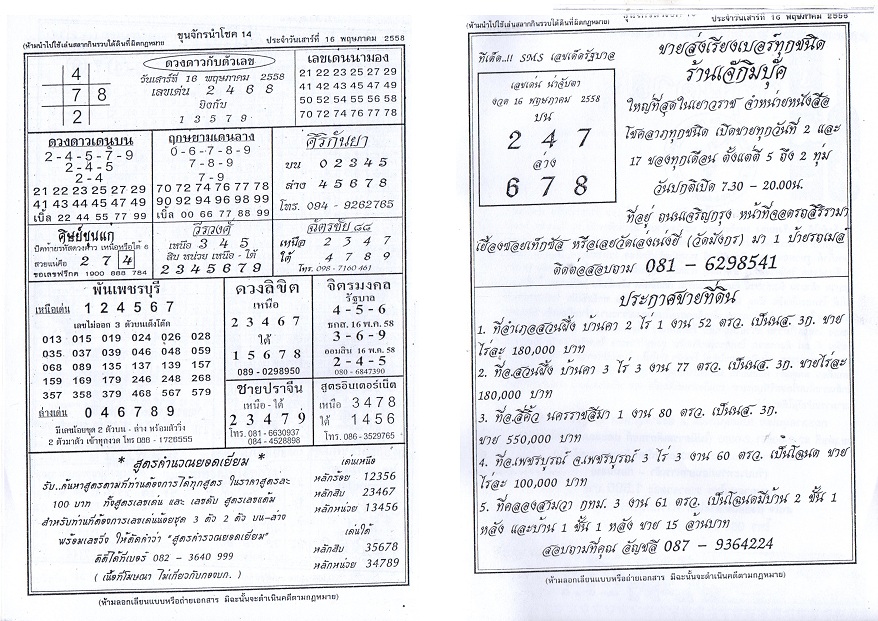 ขุนจักรนำโชค 14
(ห้ามนำไปใช้เล่นสลากกินรวบได้ดินที่ผิดกฎหมาย
ประจำวันเสาร์ที่ 16 พฤษภาคม 2558
4
7 8
2
ดวงดาวกับตัวเลข
วันเสาร์ที่ 16 พฤษภาคม 2558
เลขเด่น 2 4 6 8
ยิงกับ
1 3 5 7 9
เลขเด่นนามอง
21 22 23 25 27 29
41 42 43 45 47 49
50 52 54 55 56 58
70 72 74 76 77 78
ดวงดาวเด่นบน
2-4-5-7-9
2-4-5
2-4
21 22 23 25 27 29
41 43 44 45 47 49
เบิ้ล 22 44 55 77 99
ฤกษยามเด่นลาง
0-6-7-8-9
7-8-9
7-9
70 72 74 76 77 78
90 92 94 96 98 99
เบิ้ล 00 66 77 88 99
ศิริกันยา
บน 0 2 3 4 5
ล่าง 4 5 6 7 8
โทร. 094 - 9262765
ศิษย์ขุนแก
สวยแน่คือ 2 7 4
ขอเลขฟรีกด 1900 888 784
วีรวงศ์
เหนือ 3 4 5
สิบ หน่วย เหนือ - ใต้
2 3 4 5 6 7 9
ฉัตรชัย ๘๘
เหนือ 2 3 4 7
ใต้ 4 7 8 9
โทร. 098 - 7160461
พันเพชรบุรี
เหนือเด่น 1 2 4 5 6 7
เลขไม่ออก 3 ตัวบนเต็งโต๊ด
013 015 019 024 026 028
035 037 039 046 048 059
068 089 135 137 139 157
159 169 179 246 248 268
357 358 379 468 567 579
ล่างเด่น 0 4 6 7 8 9
มีเลขน้อยชุด 2 ตัวบน - ล่าง พร้อมตัววิ่ง
2 ตัวมาตัว เข้าทุกงวด โทร 088 - 1726555
ดวงลิขิต
เหนือ
2 3 4 6 7
ใต้
1 5 6 7 8
089 - 0298950
จิตรมงคล
รัฐบาล
4 - 5 - 6
ธกส. 16 พ.ค. 58
3 - 6 - 9
ออมสิน 16 พ.ค. 58
2 - 4 - 5
080 - 6847390
ชายปราจีน
เหนือ - ใต้
2 3 4 7 9
โทร. 081 - 6630937
084 - 4528898
สูตรอินเตอร์เน็ต
เหนือ 3 4 7 8
ใต้ 1 4 5 6
โทร. 086 - 3529765
* สูตรคำนวณยอดเยี่ยม *
รับ..ค้นหาสูตรตามที่ท่านต้องการได้ทุกสูตร ในราคาสูตรละ
100 บาท ทั้งสูตรเลขเด่น และ เลขดับ สูตรเลขแต้ม
สำหรับท่านที่ต้องการเลขเด่นน้อยชุด 3 ตัว 2 ตัว บน-ล่าง
พร้อมเลขวิ่ง ให้ตัดคำว่า "สูตรคำรวณยอดเยี่ยม"
ติดได้ที่เบอร์ 082 - 3640 999
( เนื้อที่โฆษณา ไม่เกี่ยวกับกองบก. )
เด่นเหนือ
หลักร้อย 12356
หลักสิบ 23467
หลักหน่วย 13456
เด่นใต้
หลักสิบ 35678
หลักหน่วย 34789
(ห้ามลอกเลียนแบบหรือถ่ายเอกสาร มิฉะนั้นจะดำเนินคดีตามกฎหมาย)
(ห้ามนำไปใช้เล่นสลากกินรวบได้ดินที่ผิดกฎหมาย)
ประจำวันเสาร์ที่ 16 พฤษภาคม 2558
ทีเด็ด..!! SMS เลขเด็ดรัฐบาล
เลขเด่น น่าจับตา
งวด 16 พฤษภาคม 2558
บน
2 4 7
ล่าง
6 7 8
ขายส่งเรียงเบอร์ทุกชนิด
ร้านเจ๊กิมบุ๊ค
ใหญ่ที่สุดในเยาวราช จำหน่ายหนังสือ
โชคลาภทุกชนิด เปิดขายทุกวันที่ 2 และ
17 ของทุกเดือน ตั้งแต่ตี 5 ถึง 2 ทุ่ม
วันปกติเปิด 7.30 - 20.00น.
ที่อยู่ ถนนเจริญกรุง หน้าที่จอดรถสิริรามา
เยื้องซอยเท็กซัส หรือเลยวัดเล่งเน่งยี่ (วัดมังกร) มา 1 ป้ายรถเมล์
ติดต่อสอบถาม 081 - 6298541
ประกาศขายที่ดิน
1. ที่อำเภอสวนผึ้ง บ้านคา 2 ไร่ 1 งาน 52 ตรว. เป็นนส. 3ก. ขาย
ไร่ละ 180,000 บาท
2. ที่อ.สวนผึ้ง บ้านคา 3 ไร่ 3 งาน 77 ตรว. เป็นนส. 3ก. ขายไร่ละ
180,000 บาท
3. ที่อ.สีคิ้ว นครราชสีมา 1 งาน 80 ตรว. เป็นนส. 3ก.
ขาย 550,000 บาท
4. ที่อ.เพชรบูรณ์ จ.เพชรบูรณ์ 3 ไร่ 3 งาน 60 ตรว. เป็นโฉนด ขาย
ไร่ละ 100,000 บาท
5. ที่คลองสามวา กทม. 3 งาน 61 ตรว. เป็นโฉนดมีบ้าน 2 ชั้น 1
หลัง และบ้าน 1 ชั้น 1 หลัง ขาย 15 ล้านบาท
สอบถามที่คุณ อัญชลี 087 - 9364224
(ห้ามลอกเลียนแบบหรือถ่ายเอกสาร มิฉะนั้นจะดำเนินคดีตามกฎหมาย)